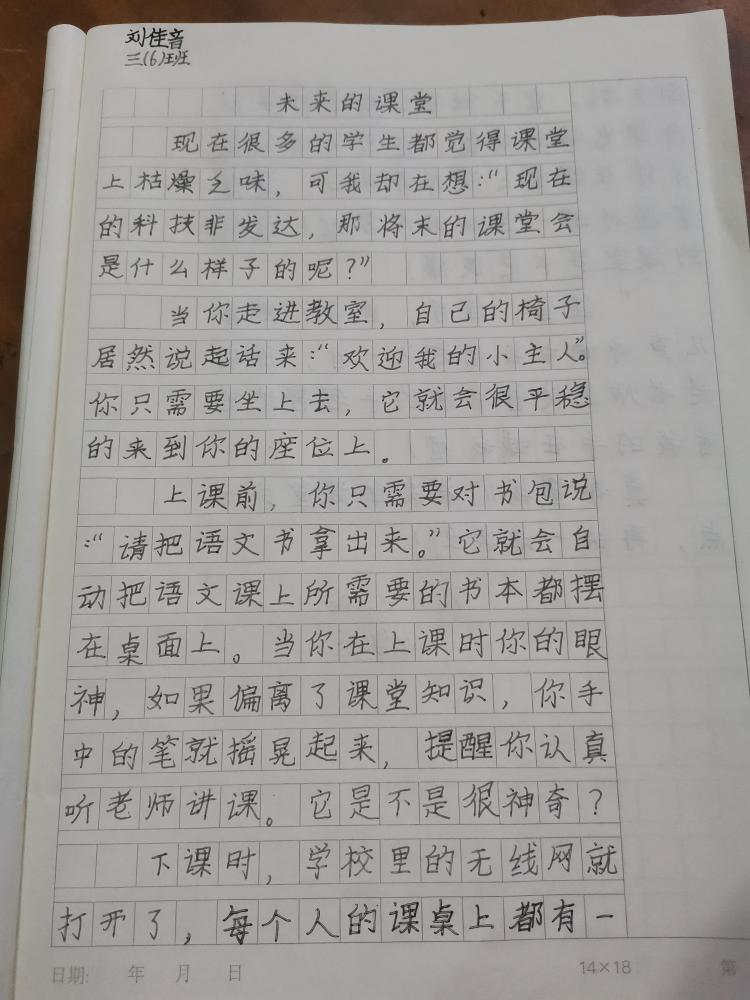 刘佳音
三(6)班
未来的课堂
现在很多的学生都觉得课堂
上枯燥乏味，可我却在想：“现在
的科技非发达，那将末的课堂会
是什么样子的呢？”
当你走进教室，自己的椅子
居然说起话来：“欢迎我的小主人”。
你只需要坐上去，它就会很平稳
的来到你的座位上。
上课前，你只需要对书包说
：“请把语文书拿出来。”它就会自
动把语文课上所需要的书本都摆
在桌面上。当你在上课时你的眼
神，如果偏离了课堂知识，你手
中的笔就摇晃起来，提醒你认真
听老师讲课。它是不是很神奇？
下课时，学校里的无线网就
打开了，每个人的课桌上都有一
日期： 年 月 日 14×18 第